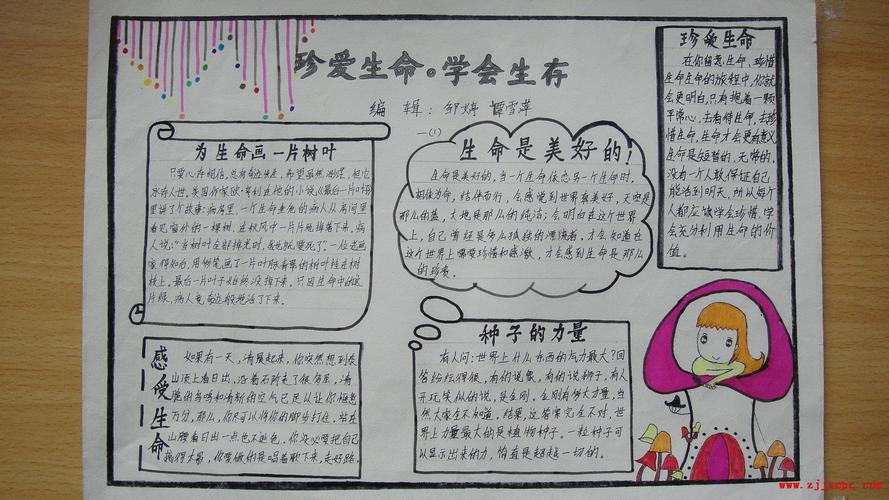 珍爱生命。学会生存
编辑：邹婷 谭雪萍
一(1)
为生命画一片树叶
只要心存相信，总有奇迹发生，希望虽然渺茫，但它
永存人世。美国作家欧·亨利在他的小说《最后一片叶》
里讲了个故事：病房里，一个生命垂危的病人从房间里
看见窗外的一棵树，在秋风中一片片地掉落下来。病
人说：“当树叶全部掉光时，我也就要死了”。一位老画
家得知后，用彩笔画了一片叶脉青翠的树叶挂在树
枝上。最后一片叶子始终没掉下来。只因生命中的这
片绿，病人竟奇迹般地活了下来。
生命是美好的！
生命是美好的，当一个生命依恋另一个生命时，
相依为命，结伴而行，会感觉到世界真美好，天空是
那么的蓝，大地是那么的纯洁；会明白在这个世界
上，自己曾经是多么孤独的漂流者，才会知道在
这个世界上需要珍惜和感激，才会感到生命是那么
的珍贵。
珍爱生命
在你留恋生命、珍惜
生命生命的旅程中，你就
会更明白，只有抱着一颗
平常心，去看待生命，去珍
惜生命，生命才会更有意义
生命是短暂的，无常的，
没有一个人敢保证自己
能活到明天，所以每个
人都应该学会珍惜，学
会充分利用生命的价
值。
感受生命
如果有一天，清晨起来，你突然想到爬
山顶上看日出，沿着石阶走了很久后，清
脆的鸟鸣和清新的空气已足以让你惬意
万分，那么，你尽可以将你的脚步打住，站在
山腰看日出一点也不逊色，你没必要把自己
搞得太累，你要做的是唱着歌下来，走好路。
种子的力量
有人问：世界上什么东西的气力最大？回
答纷纭得很，有的说象，有的说狮子，有人
开玩笑似的说，是金刚，金刚有多大力量，当
然大家全不知道。结果，这答案完全不对，世
界上力量最大的是植物种子。一粒种子可
以显示出来的力，简直是超越一切的。
www.zjjxcpc.com